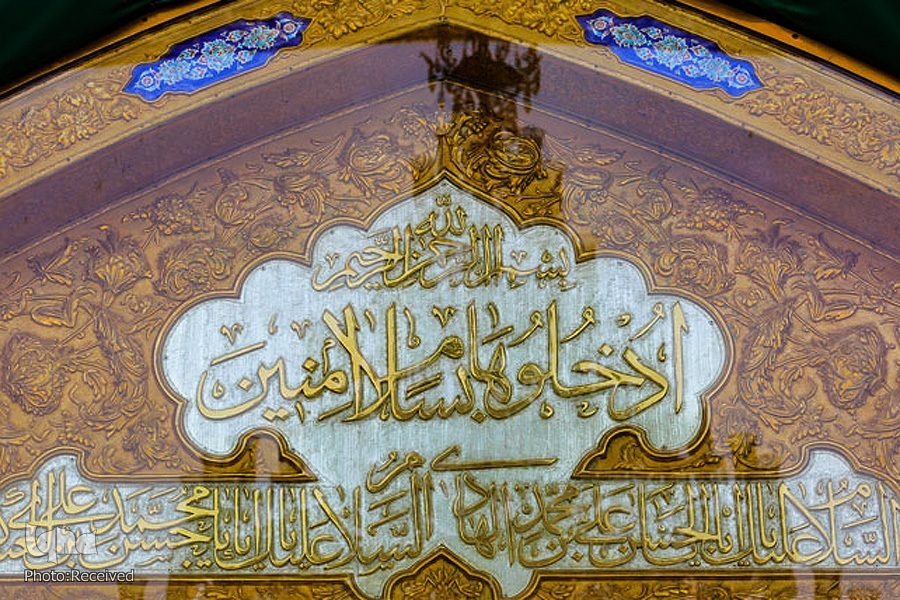 بسم الله الرحمن الرحيم
ادْخُلُوهَا بِسَلَامٍ آمِنِينَ
السلام عليك يا ابا الحسن علي بن محمد الهادي السلام عليك يا ابا محمد حسن بن علي
iqna
Photo:Received